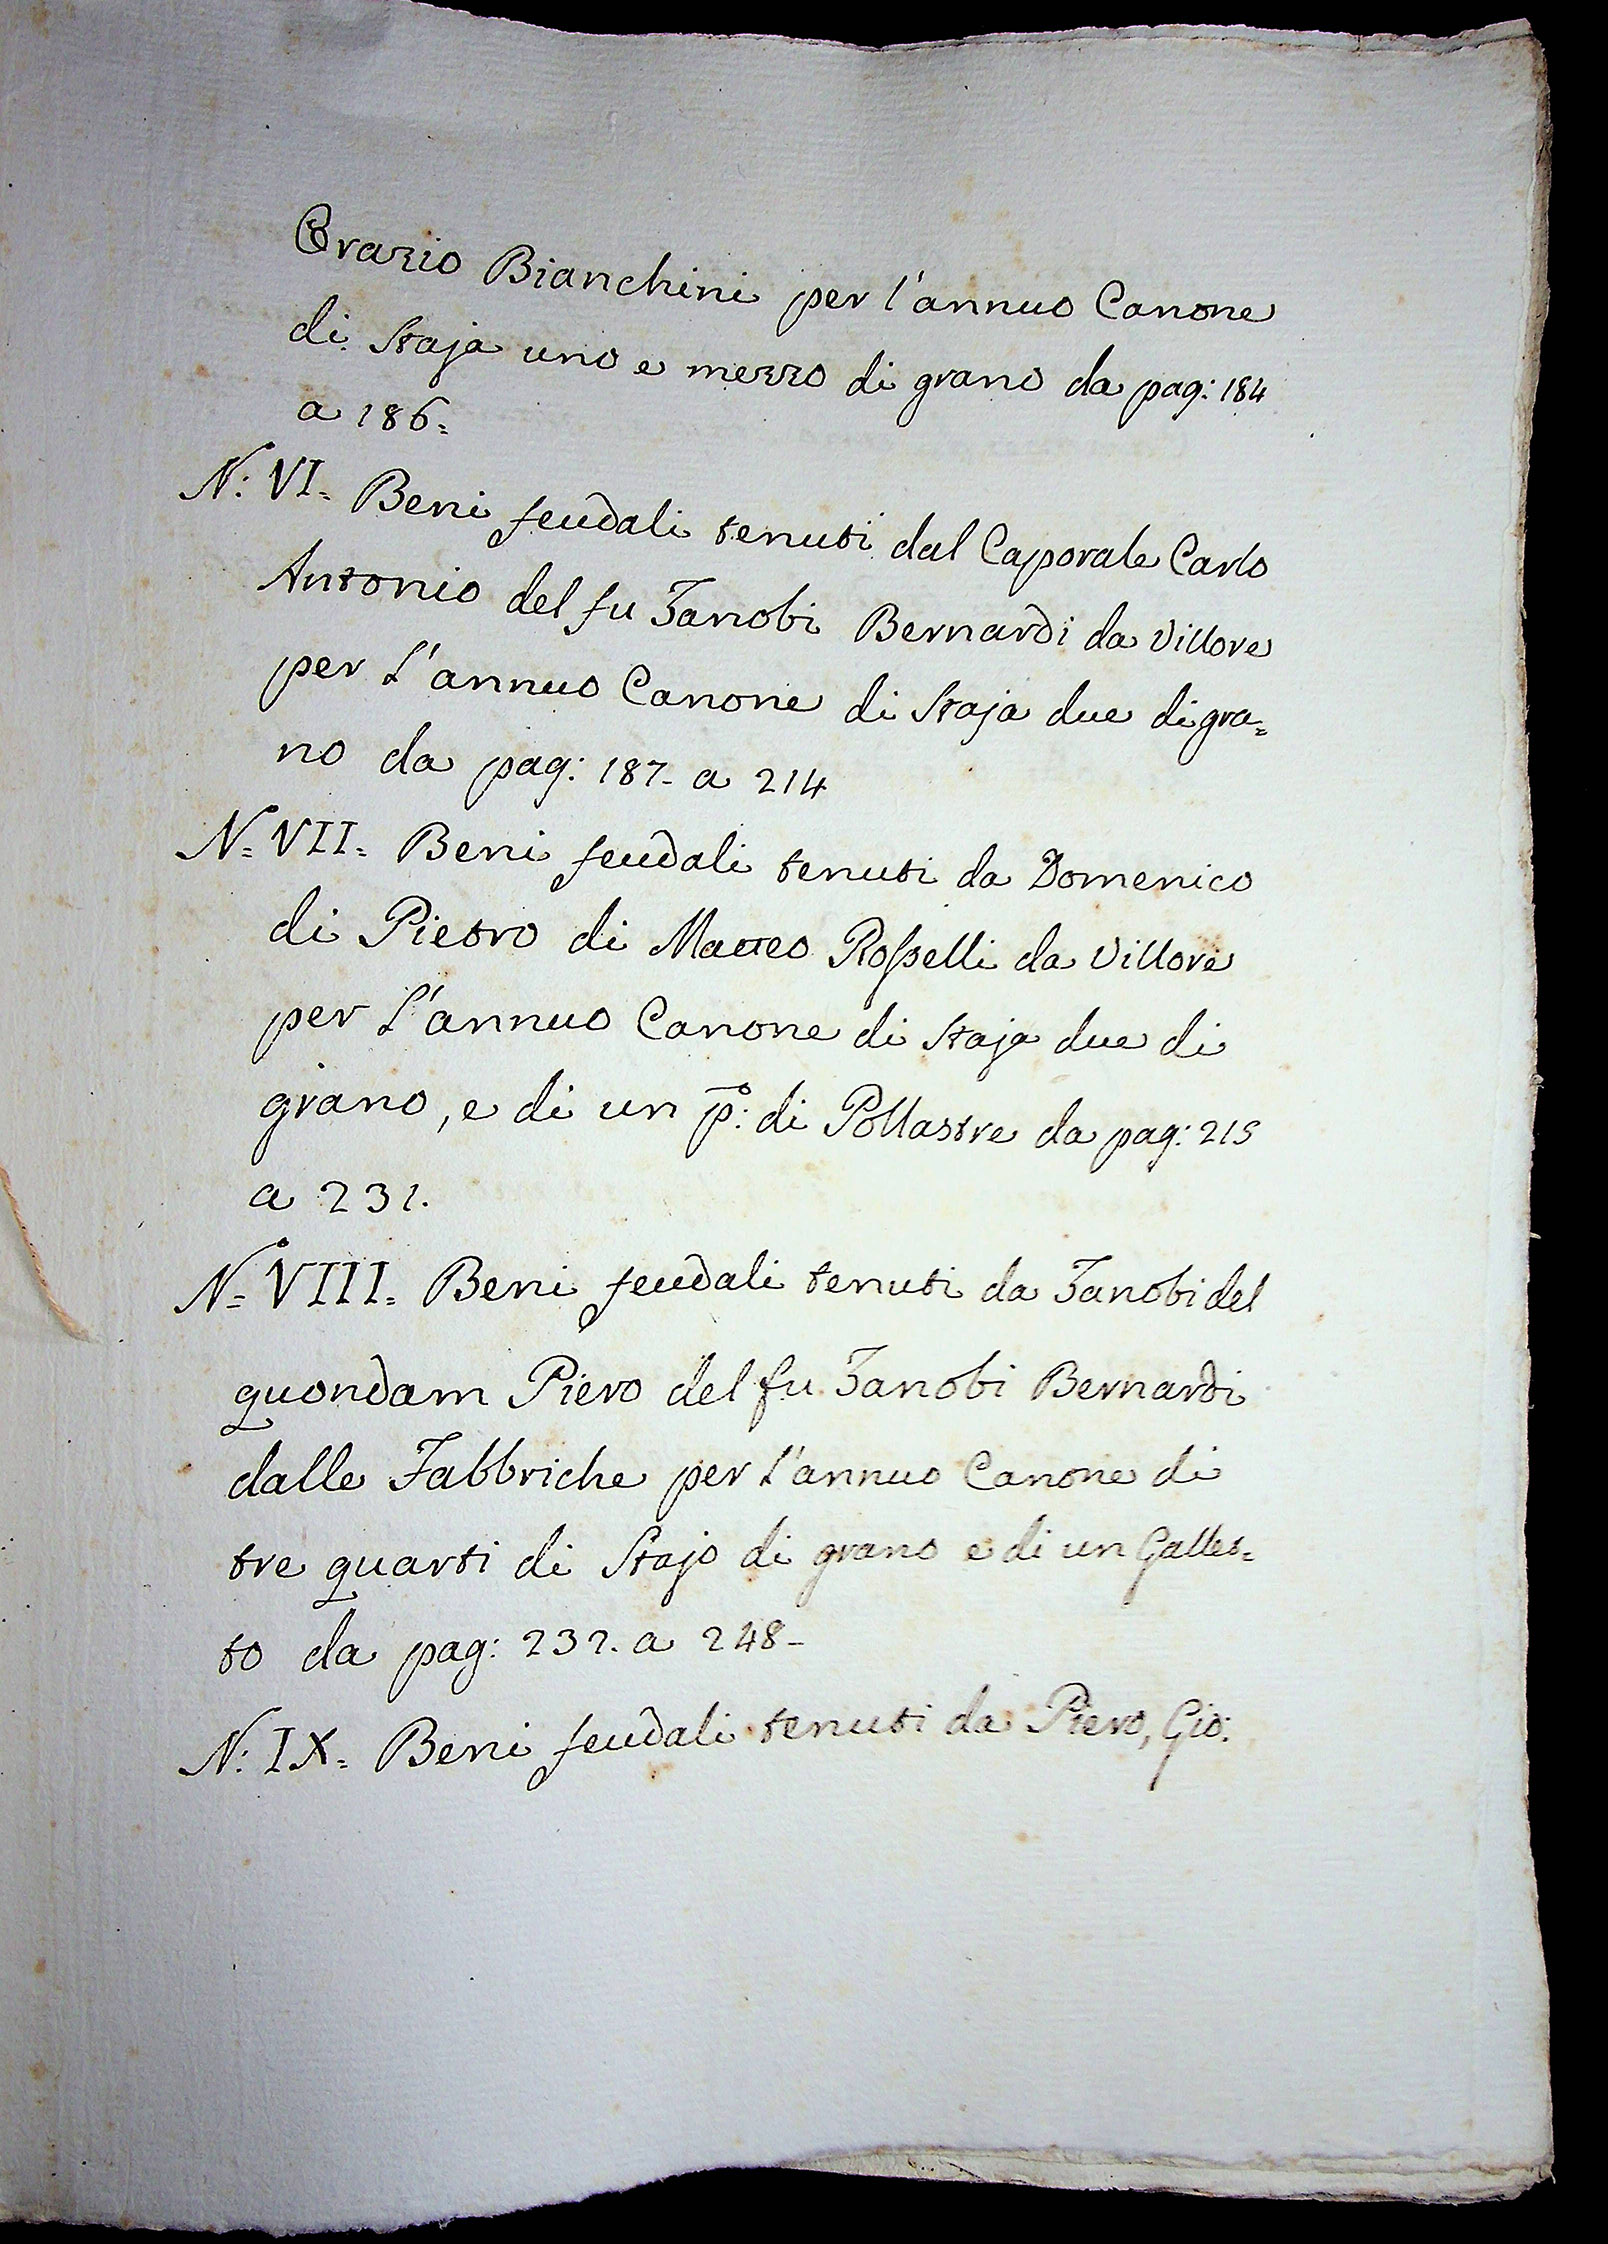 Orazio Bianchini per l'annuo Canone
di Staja uno e mezzo di grano da pag: 184
a 186=
N: VI= Beni feudali tenuti dal Caporale Carlo
Antonio del fu Zanobi Bernardi da Villore
per L'annuo Canone di Staja due di gra=
no da pag: 187- a 214
N= VII= Beni feudali tenuti da Domenico
di Pietro di Matteo Rosselli da Villore
per L'annuo Canone di Staja due di
grano, e di un p.º: di Pollastre da pag: 215
a 231.
N= VIII= Beni feudali tenuti da Zanobi del
quondam Piero del fu Zanobi Bernardi
dalle Fabbriche per L'annuo Canone di
tre quarti di Stajo di grano e di un Gallet=
to da pag: 232. a 248-
N: IX= Beni feudali tenuti da Piero, Gio: